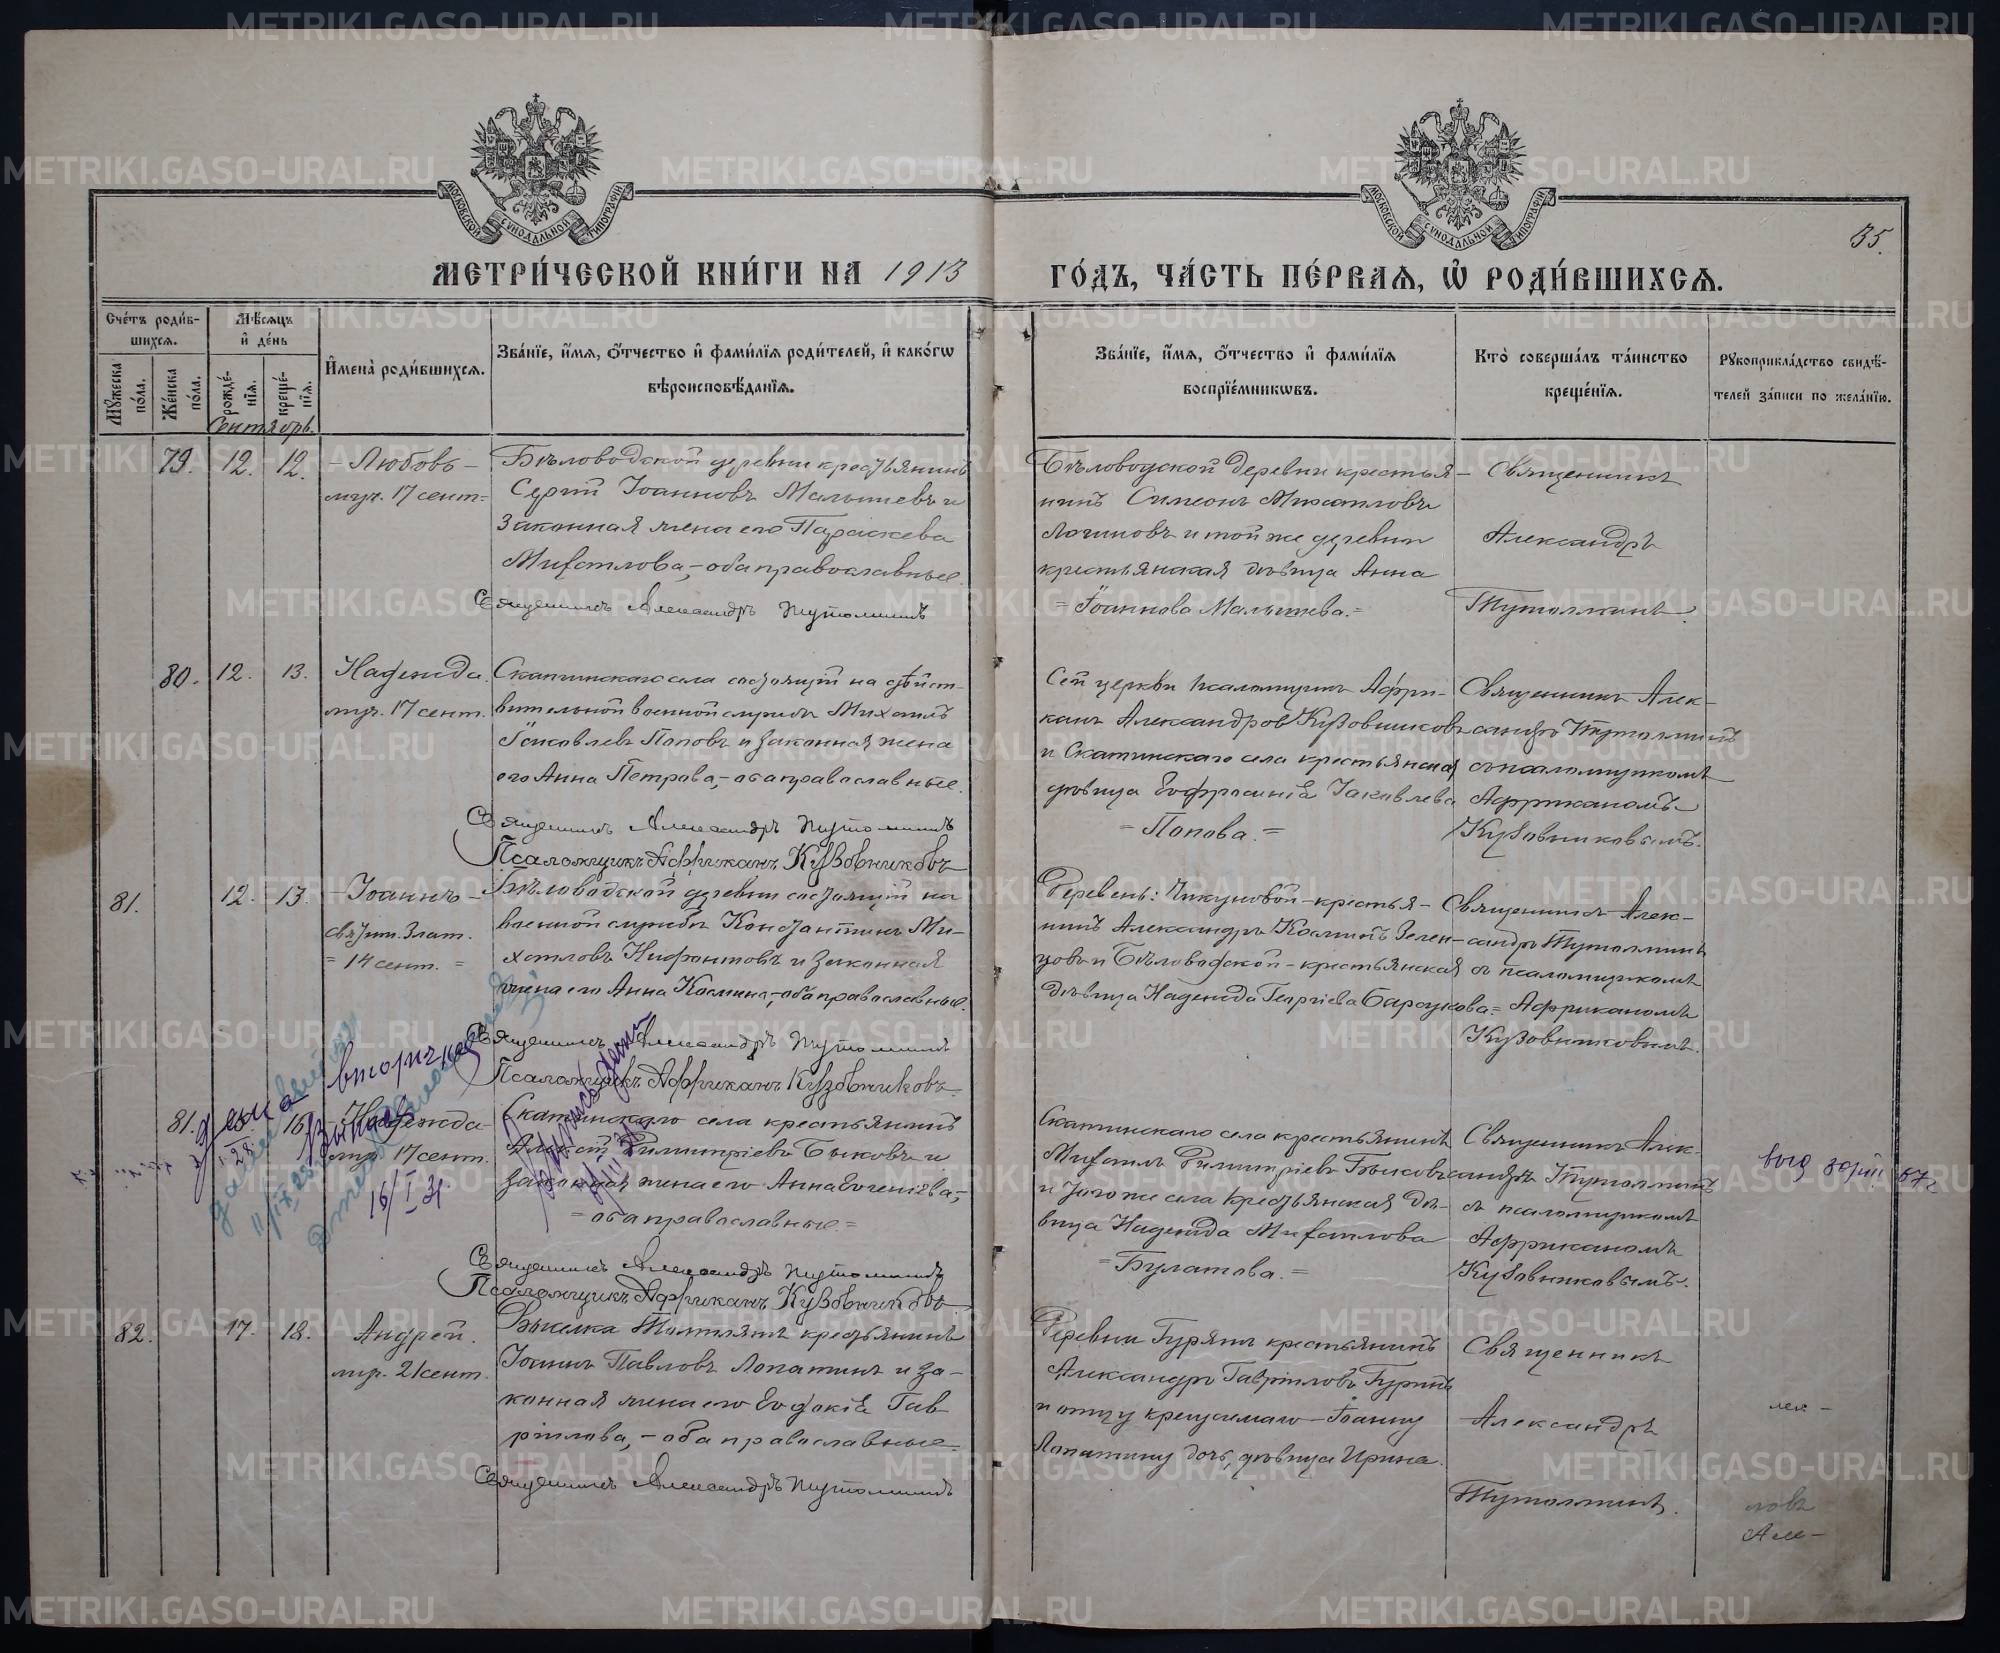 МЕТРИ́ЧЕСКОЙ КНИ́ГИ НА 1913
ГО́ДЪ, ЧА́СТЬ ПЕ́РВАѦ, Ѽ РОДИ́ВШИХСѦ.
35.
МОСКОВСКОЙ СѴНОДАЛЬНОЙ ТИПОГРАФІИ
МОСКОВСКОЙ СѴНОДАЛЬНОЙ ТИПОГРАФІИ
Сче́тъ роди́вшихсѧ.
Мꙋ́жеска по́ла.
Же́нска по́ла.
Мѣ́сѧцъ и҆ де́нь
рожде́нїѧ.
креще́нїѧ.
И҆мена̀ роди́вшихсѧ.
Зва́нїе, и҆́мѧ, ѻ҆́тчество и҆ фами́лїѧ роди́телей, и҆ како́гѡ
вѣроисповѣ́данїѧ.
Зва́нїе, и҆́мѧ, ѻ҆́тчество и҆ фами́лїѧ
воспрїе́мникѡвъ.
Кто̀ соверша́лъ та́инство
креще́нїѧ.
Рꙋкоприкла́дство свидѣ́-
телей за́писи по жела́нїю.
Сентябрь.
79. 12. 12.
- Любовь -
муч. 17 сент.=
Бѣловодской деревни крестьянинъ
Сергій Іоанновъ Малышевъ и
законная жена его Параскева
Михаилова,- оба православные.
Священникъ Александръ Тутолминъ
Бѣловодской деревни крестья-
нинъ Симеонъ Михаиловъ
Логиновъ и той же деревни
крестьянская дѣвица Анна
= Іоаннова Малышева. =
Священникъ
Александръ
Тутолминъ.
80. 12. 13.
Надежда.
муч. 17 сент.
Скатинскаго села состоящій на дѣйст-
вительной военной службѣ Михаилъ
Іаковлевъ Поповъ и законная жена
его Анна Петрова,- оба православные.
Священникъ Александръ Тутолминъ
Псаломщикъ Африканъ Кузовниковъ
Сей церкви псаломщикъ Афри-
канъ Александровъ Кузовниковъ
и Скатинскаго села крестьянская
дѣвица Евфросинія Іаковлева
= Попова. =
Священникъ Алек-
сандръ Тутолминъ
съ псаломщикомъ
Африканомъ
Кузовниковымъ.
81. 12. 13.
- Іоаннъ -
свят. Злат.
= 14 сент. =
Бѣловодской деревни состоящій на
военной службѣ Константинъ Ми-
хаиловъ Нифантовъ и законная
жена его Анна Космина,- оба православные.
Священникъ Александръ Тутолминъ
Псаломщикъ Африканъ Кузовниковъ.
Деревень: Чикуновой - крестья-
нинъ Александръ Косминъ Зелен-
цовъ и Бѣловодской - крестьянская
дѣвица Надежда Георгіева Барсукова =
Священникъ Алек-
сандръ Тутолминъ
съ псаломщикомъ
Африканомъ
Кузовниковымъ.
вторично
16/I 31
81. 16.
Надежда
муч. 17 сент.
Скатинскаго села крестьянинъ
Алексій Димитріевъ Быковъ и
законная жена его Анна Евгеніева,-
= оба православные. =
Священникъ Александръ Тутолминъ
Псаломщикъ Африканъ Кузовниковъ.
Скатинскаго села крестьянинъ
Михаилъ Димитріевъ Быковъ
и того же села крестьянская дѣ-
вица Надежда Михаилова
= Булатова. =
Священникъ Алек-
сандръ Тутолминъ
съ псаломщикомъ
Африканомъ
Кузовниковымъ.
82. 17. 18.
Андрей.
мр. 21 сент.
Іоаннъ Павловъ Лопатинъ и за-
конная жена его Евдокія Гав-
ріилова,- оба православные.
Священникъ Александръ Тутолминъ
Деревни Гурянъ крестьянинъ
Александръ Гавріиловъ Гуринъ
и отцу крещаемаго - Іоанну
Лопатину дочь, дѣвица Ирина.
Священникъ
Александръ
Тутолминъ.